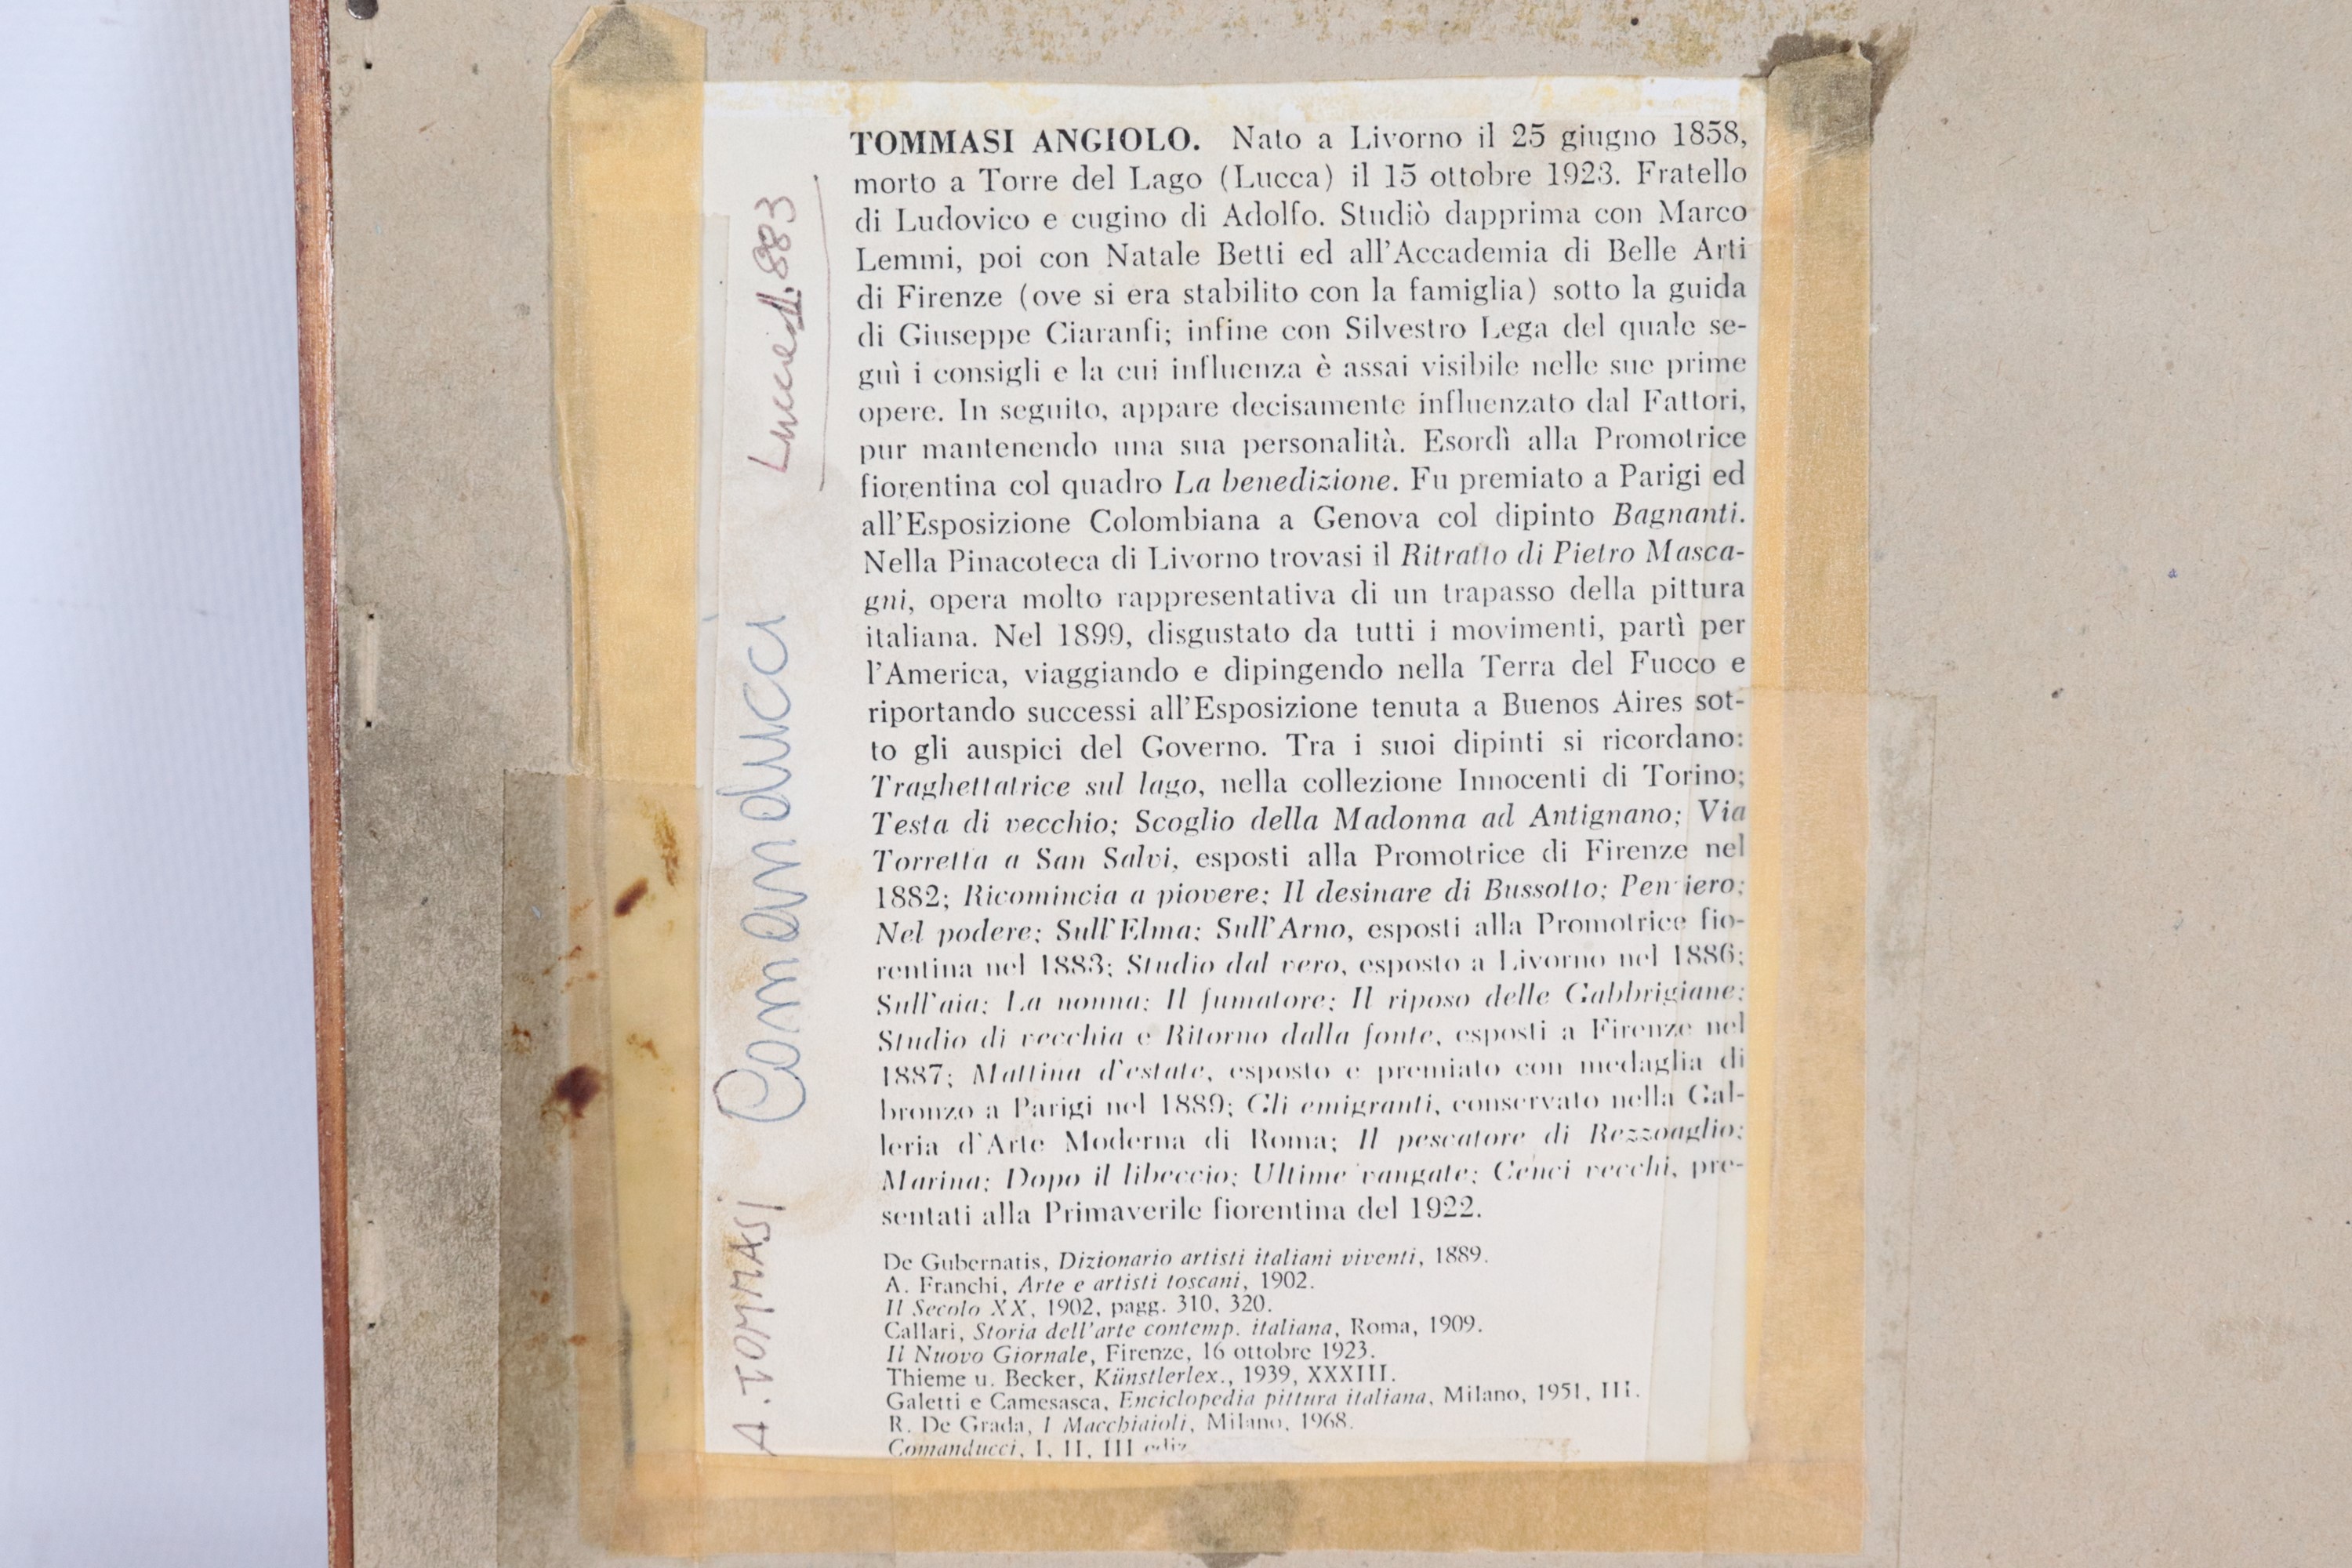 TOMMASI ANGIOLO. Nato a Livorno il 25 giugno 1858,
morto a Torre del Lago (Lucca) il 15 ottobre 1923. Fratello
di Ludovico e cugino di Adolfo. Studiò dapprima con Marco
Lemmi, poi con Natale Betti ed all'Accademia di Belle Arti
di Firenze (ove si era stabilito con la famiglia) sotto la guida
di Giuseppe Ciaranfi; infine con Silvestro Lega del quale se-
guì i consigli e la cui influenza è assai visibile nelle sue prime
opere. In seguito, appare decisamente influenzato dal Fattori,
pur mantenendo una sua personalità. Esordì alla Promotrice
fiorentina col quadro La benedizione. Fu premiato a Parigi ed
all'Esposizione Colombiana a Genova col dipinto Bagnanti.
Nella Pinacoteca di Livorno trovasi il Ritratto di Pietro Masca-
gni, opera molto rappresentativa di un trapasso della pittura
italiana. Nel 1899, disgustato da tutti i movimenti, partì per
l'America, viaggiando e dipingendo nella Terra del Fuoco e
riportando successi all'Esposizione tenuta a Buenos Aires sot-
to gli auspici del Governo. Tra i suoi dipinti si ricordano:
Traghettatrice sul lago, nella collezione Innocenti di Torino;
Testa di vecchio; Scoglio della Madonna ad Antignano; Via
Torretta a San Salvi, esposti alla Promotrice di Firenze nel
1882; Ricomincia a piovere; Il desinare di Bussotto; Pensiero;
Nel podere; Sull'Elma; Sull'Arno, esposti alla Promotrice fio-
rentina nel 1883; Studio dal vero, esposto a Livorno nel 1886;
Sull'aia; La nonna; Il fumatore; Il riposo delle Gabbrigiane;
Studio di vecchia e Ritorno dalla fonte, esposti a Firenze nel
1887; Mattina d'estate, esposto e premiato con medaglia di
bronzo a Parigi nel 1889; Gli emigranti, conservato nella Gal-
leria d'Arte Moderna di Roma; Il pescatore di Rezzoaglio;
Marina; Dopo il libeccio; Ultime vangate; Cenci vecchi, pre-
sentati alla Primaverile fiorentina del 1922.
De Gubernatis, Dizionario artisti italiani viventi, 1889.
A. Franchi, Arte e artisti toscani, 1902.
Il Secolo XX, 1902, pagg. 310, 320.
Callari, Storia dell'arte contemp. italiana, Roma, 1909.
Il Nuovo Giornale, Firenze, 16 ottobre 1923.
Thieme u. Becker, Künstlerlex., 1939, XXXIII.
Galetti e Camesasca, Enciclopedia pittura italiana, Milano, 1951, III.
R. De Grada, I Macchiaioli, Milano, 1968.
Comanducci, I, II, III ediz
A. TOMMASI Comanducci
883